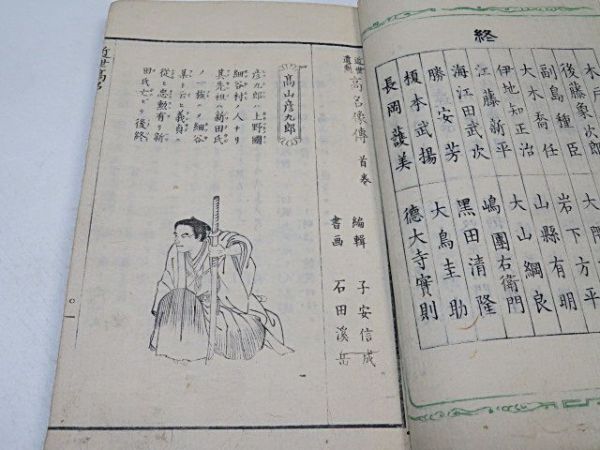 終
木戸
後藤象次郎
副島種臣
大木喬任
伊地知正治
江藤新平
海江田武次
勝安芳
榎本武揚
長岡護美
大隈
岩下方平
山縣有朋
大山綱良
嶋團右衛門
黒田清隆
大鳥圭助
徳大寺實則
近世
高名像傳 首巻
編輯 子安信成
書画 石田溪岳
高山彦九郎
彦九郎ハ上野國
細谷村ノ人ナリ
其先祖ハ新田氏
ノ一族ヲ細谷
某ト云ヒ義貞ニ
從ヒ忠勲有リ新
田氏亡ビ後終
近世高名
〇一